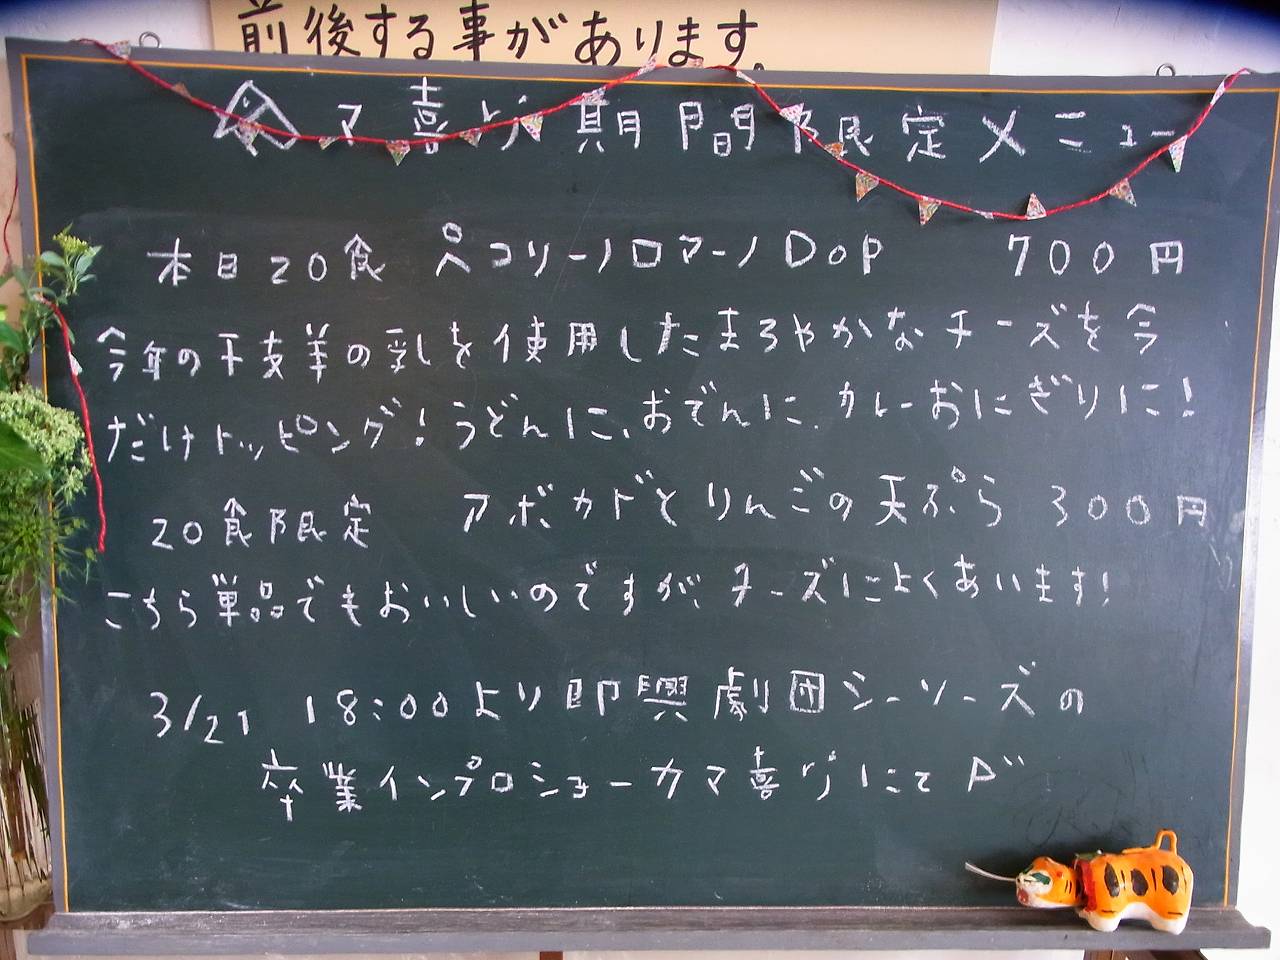 前後する事があります。
カマ喜ㇼ期間限定メニュー
本日20食 ペコリーノロマーノDOP 700円
今年の干支羊の乳を使用したまろやかなチーズを今
だけトッピング!うどんに、おでんに、カレーおにぎりに!
20食限定 アボカドとりんごの天ぷら 300円
こちら単品でもおいしいのですが、チーズによくあいます!
3/21 18:00より即興劇団シーソーズの
卒業インプロショーカマ喜りにて